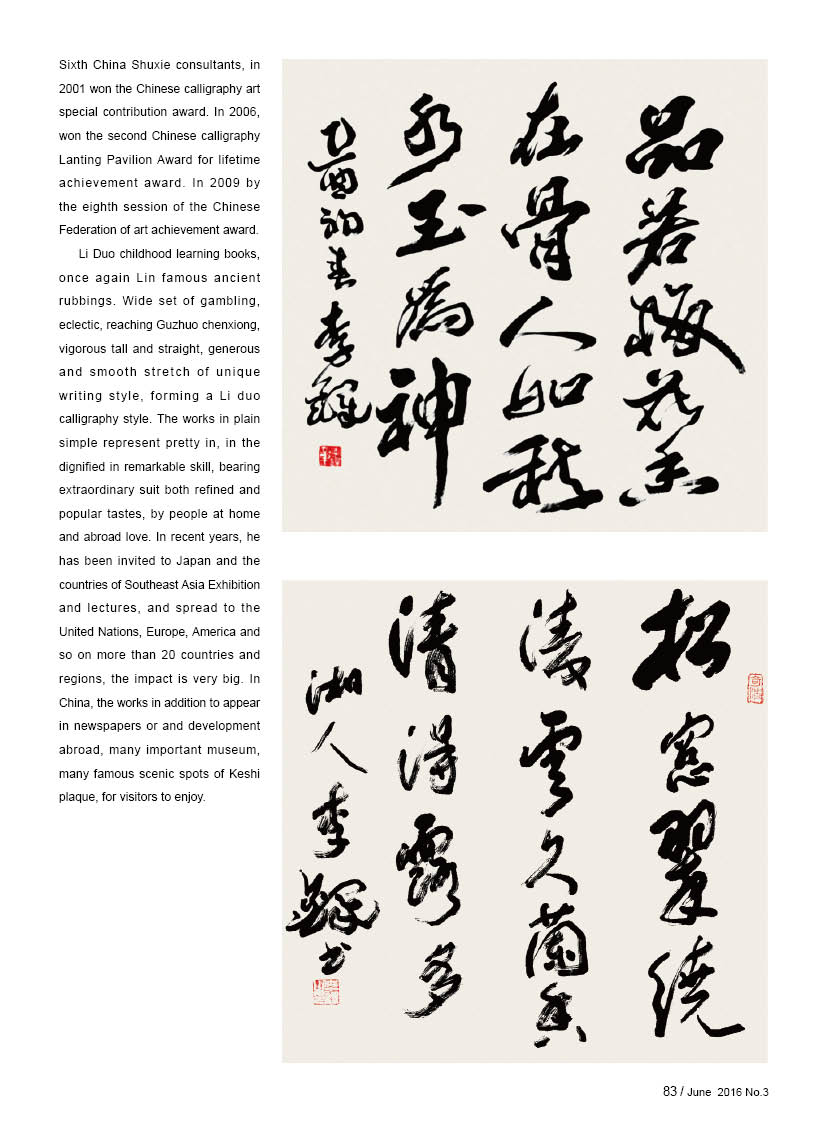 Sixth China Shuxie consultants, in
2001 won the Chinese calligraphy art
special contribution award. In 2006,
won the second Chinese calligraphy
Lanting Pavilion Award for lifetime
achievement award. In 2009 by
the eighth session of the Chinese
Federation of art achievement award.
Li Duo childhood learning books,
once again Lin famous ancient
rubbings. Wide set of gambling,
eclectic, reaching Guzhuo chenxiong,
vigorous tall and straight, generous
and smooth stretch of unique
writing style, forming a Li duo
calligraphy style. The works in plain
simple represent pretty in, in the
dignified in remarkable skill, bearing
extraordinary suit both refined and
popular tastes, by people at home
and abroad love. In recent years, he
has been invited to Japan and the
countries of Southeast Asia Exhibition
and lectures, and spread to the
United Nations, Europe, America and
so on more than 20 countries and
regions, the impact is very big. In
China, the works in addition to appear
in newspapers or and development
abroad, many important museum,
many famous scenic spots of Keshi
plaque, for visitors to enjoy.
品若梅花香
在骨人如秋
水玉為神
乙酉初春李鐸
松窗翠繞
凌雲久蘭香
清得露多
湘人李鐸书
83 / June 2016 No.3